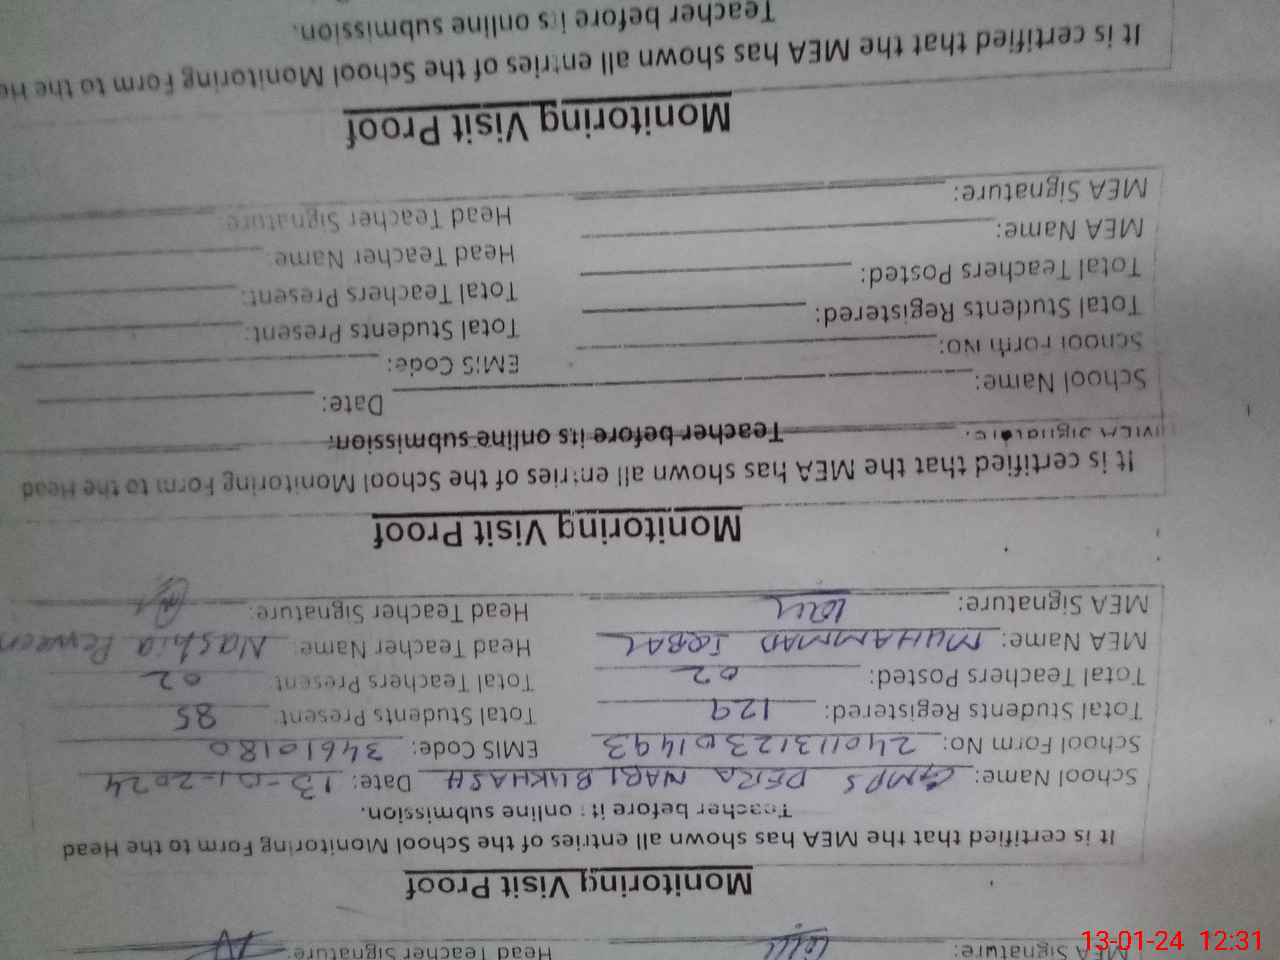 MEA Signature: Head Teacher Signature:
Monitoring Visit Proof
It is certified that the MEA has shown all entries of the School Monitoring Form to the Head
Teacher before its online submission.
School Name: GMPS DERA NABI BUKHASH Date: 13-01-2024
School Form No: 24011312301493 EMIS Code: 34610180
Total Students Registered: 129 Total Students Present: 85
Total Teachers Posted: 02 Total Teachers Present: 02
MEA Name: MUHAMMAD IQBAL Head Teacher Name: Nashia
MEA Signature: Head Teacher Signature:
Monitoring Visit Proof
It is certified that the MEA has shown all entries of the School Monitoring Form to the Head
MEA Signature: Teacher before its online submission.
School Name: Date:
School Form No: EMIS Code:
Total Students Registered: Total Students Present:
Total Teachers Posted: Total Teachers Present:
MEA Name: Head Teacher Name:
MEA Signature: Head Teacher Signature:
Monitoring Visit Proof
It is certified that the MEA has shown all entries of the School Monitoring Form to the He
Teacher before its online submission.
13-01-24 12:31